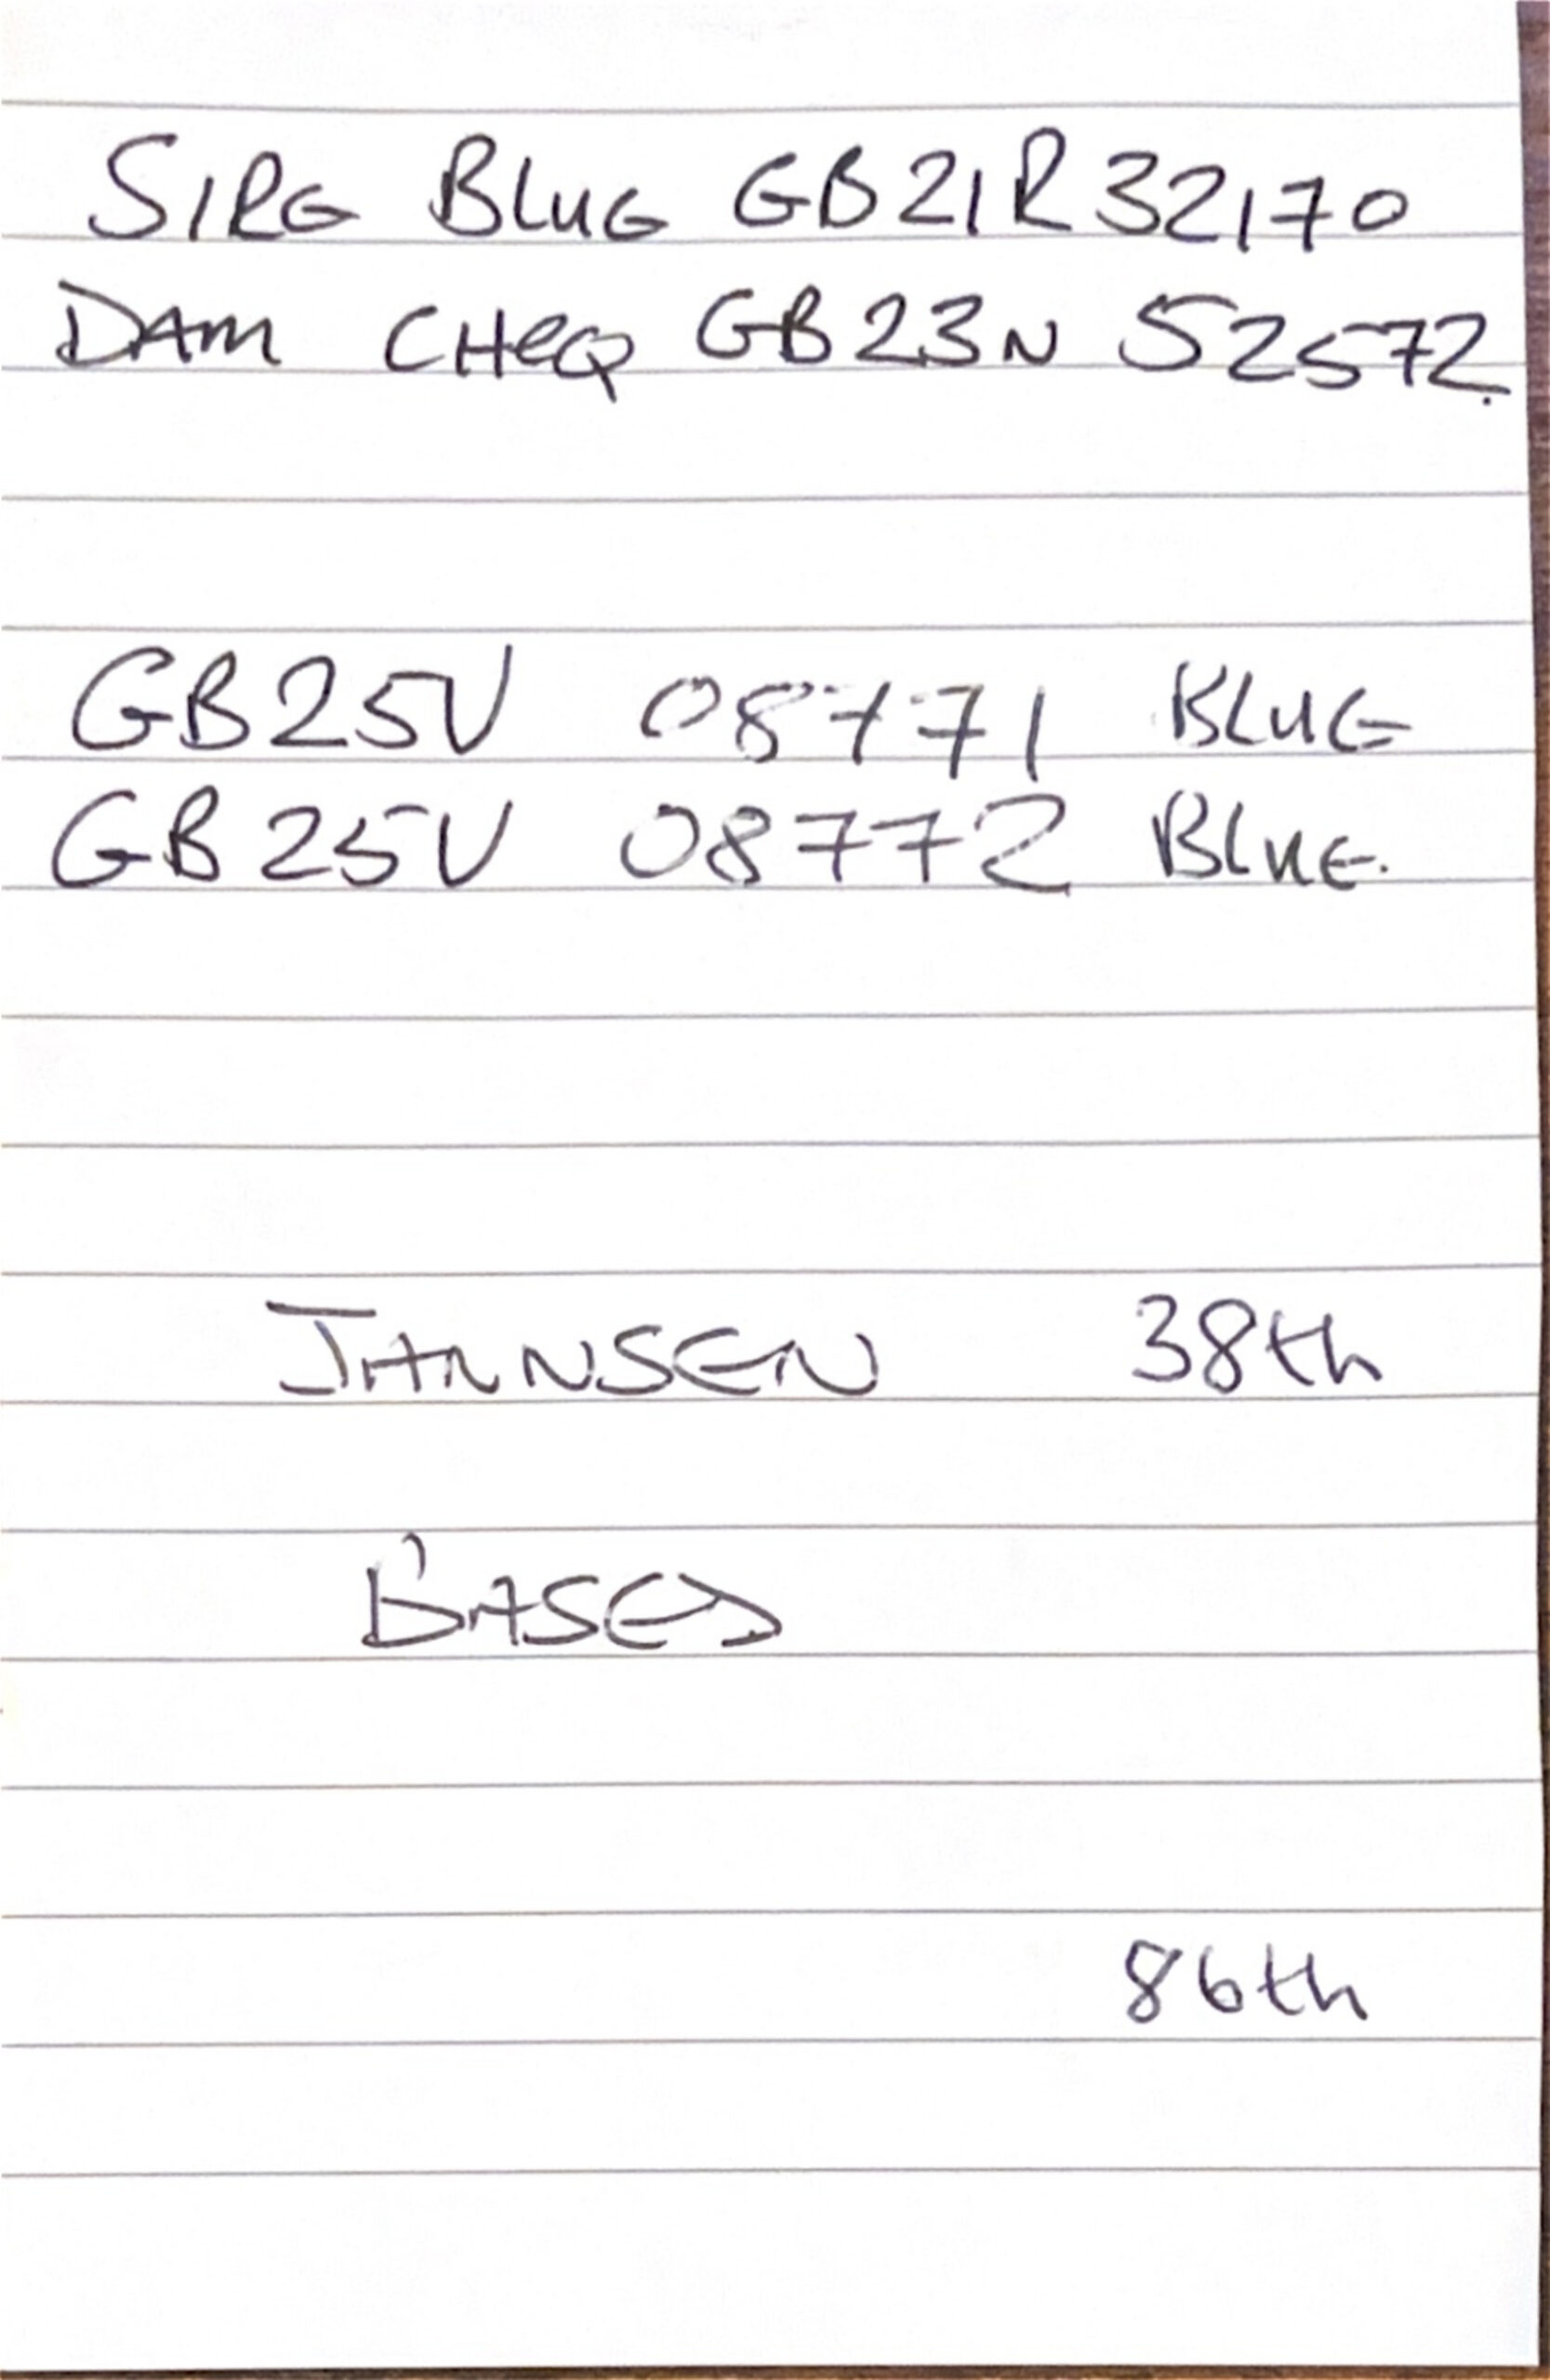 SIRE BLUE GB21R32170
DAM CHEQ GB23N 52572.
GB25V 08771 BLUE
GB25V 08772 BLUE.
JANNSEN 38th
BASED
86th